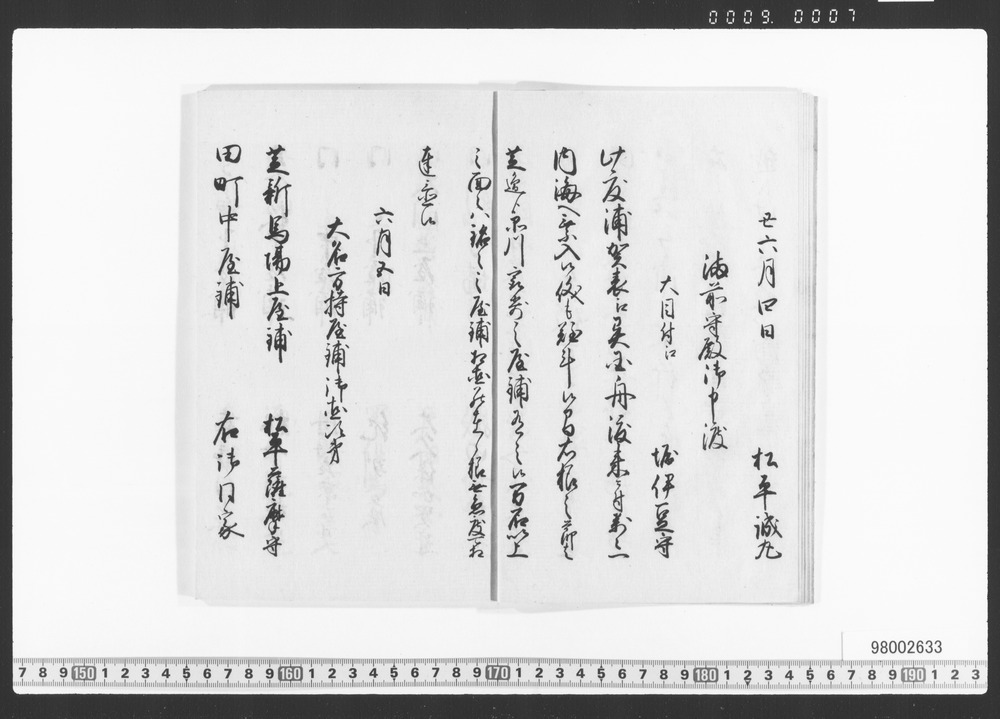 0009. 0007
丑六月四日
松平誠丸
備前守殿御申渡
大目付江
堀伊豆守
此度浦賀表江異国舟渡来ニ付万々一
内海へ乗入候儀も難斗候間右様之節
芝辺ゟ品川最寄ニ屋鋪有之候万石以上
之面々ハ銘々之屋鋪相固
達候
六月五日
大名方持屋鋪御固
芝新馬場上屋鋪
松平薩摩守
田町中屋鋪
右御同家
98002633
7 8 9 150 1 2 3 4 5 6 7 8 9 160 1 2 3 4 5 6 7 8 9 170 1 2 3 4 5 6 7 8 9 180 1 2 3 4 5 6 7 8 9 190 1 2 3